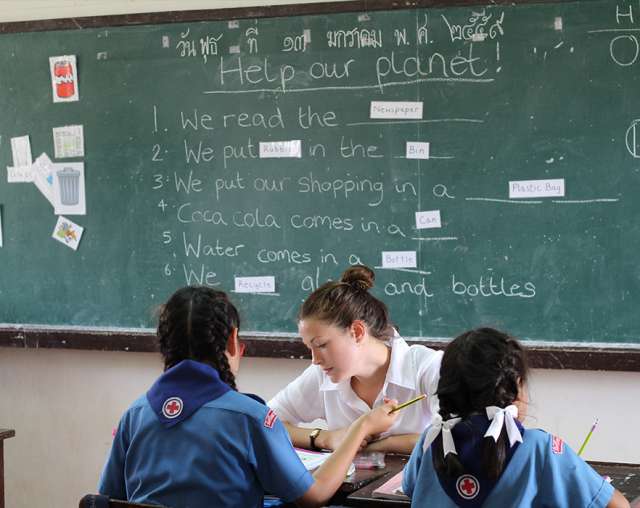 วันพุธ ที่ ๑๓ มกราคม พ.ศ. ๒๕๕๙
Help our planet!
1. We read the Newspaper
2. We put Rubbish in the Bin
3. We put our shopping in a Plastic Bag
4. Coca cola comes in a Can
5. Water comes in a Bottle
6. We Recycle and bottles